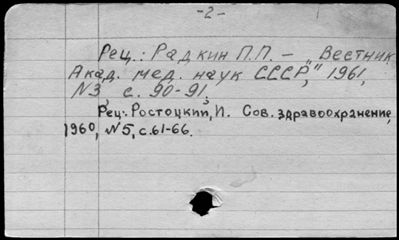 -2-
Рец.: Радкин П.П. – „Вестник
Акад. мед. наук СССР," 1961,
N3, с. 90-91.
Рец.: Ростоцкий, И. Сов. здравоохранение,
1960, N5, с.61-66.